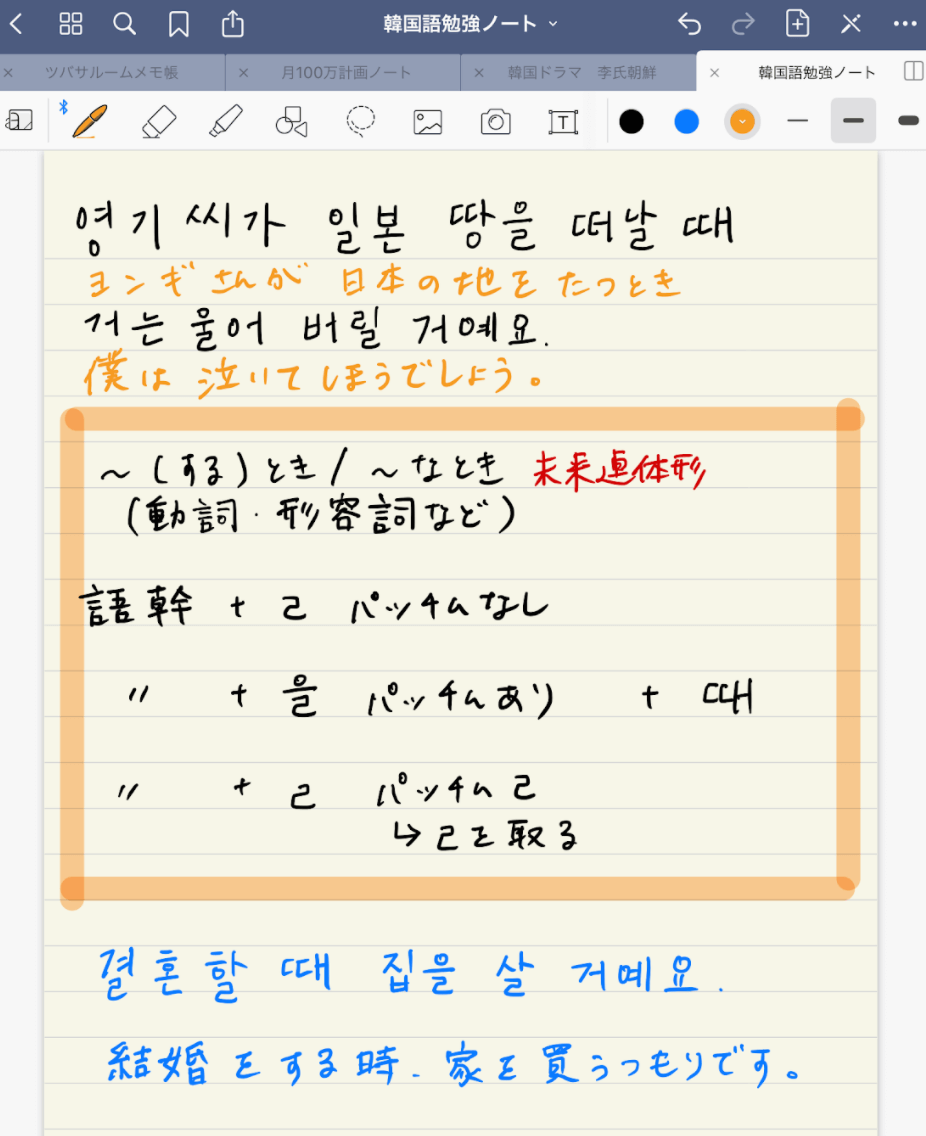 韓国語勉強ノート
ツバサルームメモ帳 月100万計画ノート 韓国ドラマ 李氏朝鮮 韓国語勉強ノート
영기 씨가 일본 땅을 떠날 때
ヨンギさんが 日本の地を たつとき
저는 울어 버릴 거예요.
僕は 泣いてしまうでしょう。
～(する)とき/～なとき 未来連体形
(動詞・形容詞など)
語幹 + ㄹ パッチムなし
〃 + 을 パッチムあり + 때
〃 + ㄹ パッチムㄹ
↳ ㄹを取る
결혼할 때 집을 살 거예요.
結婚をする時、家を買うつもりです。